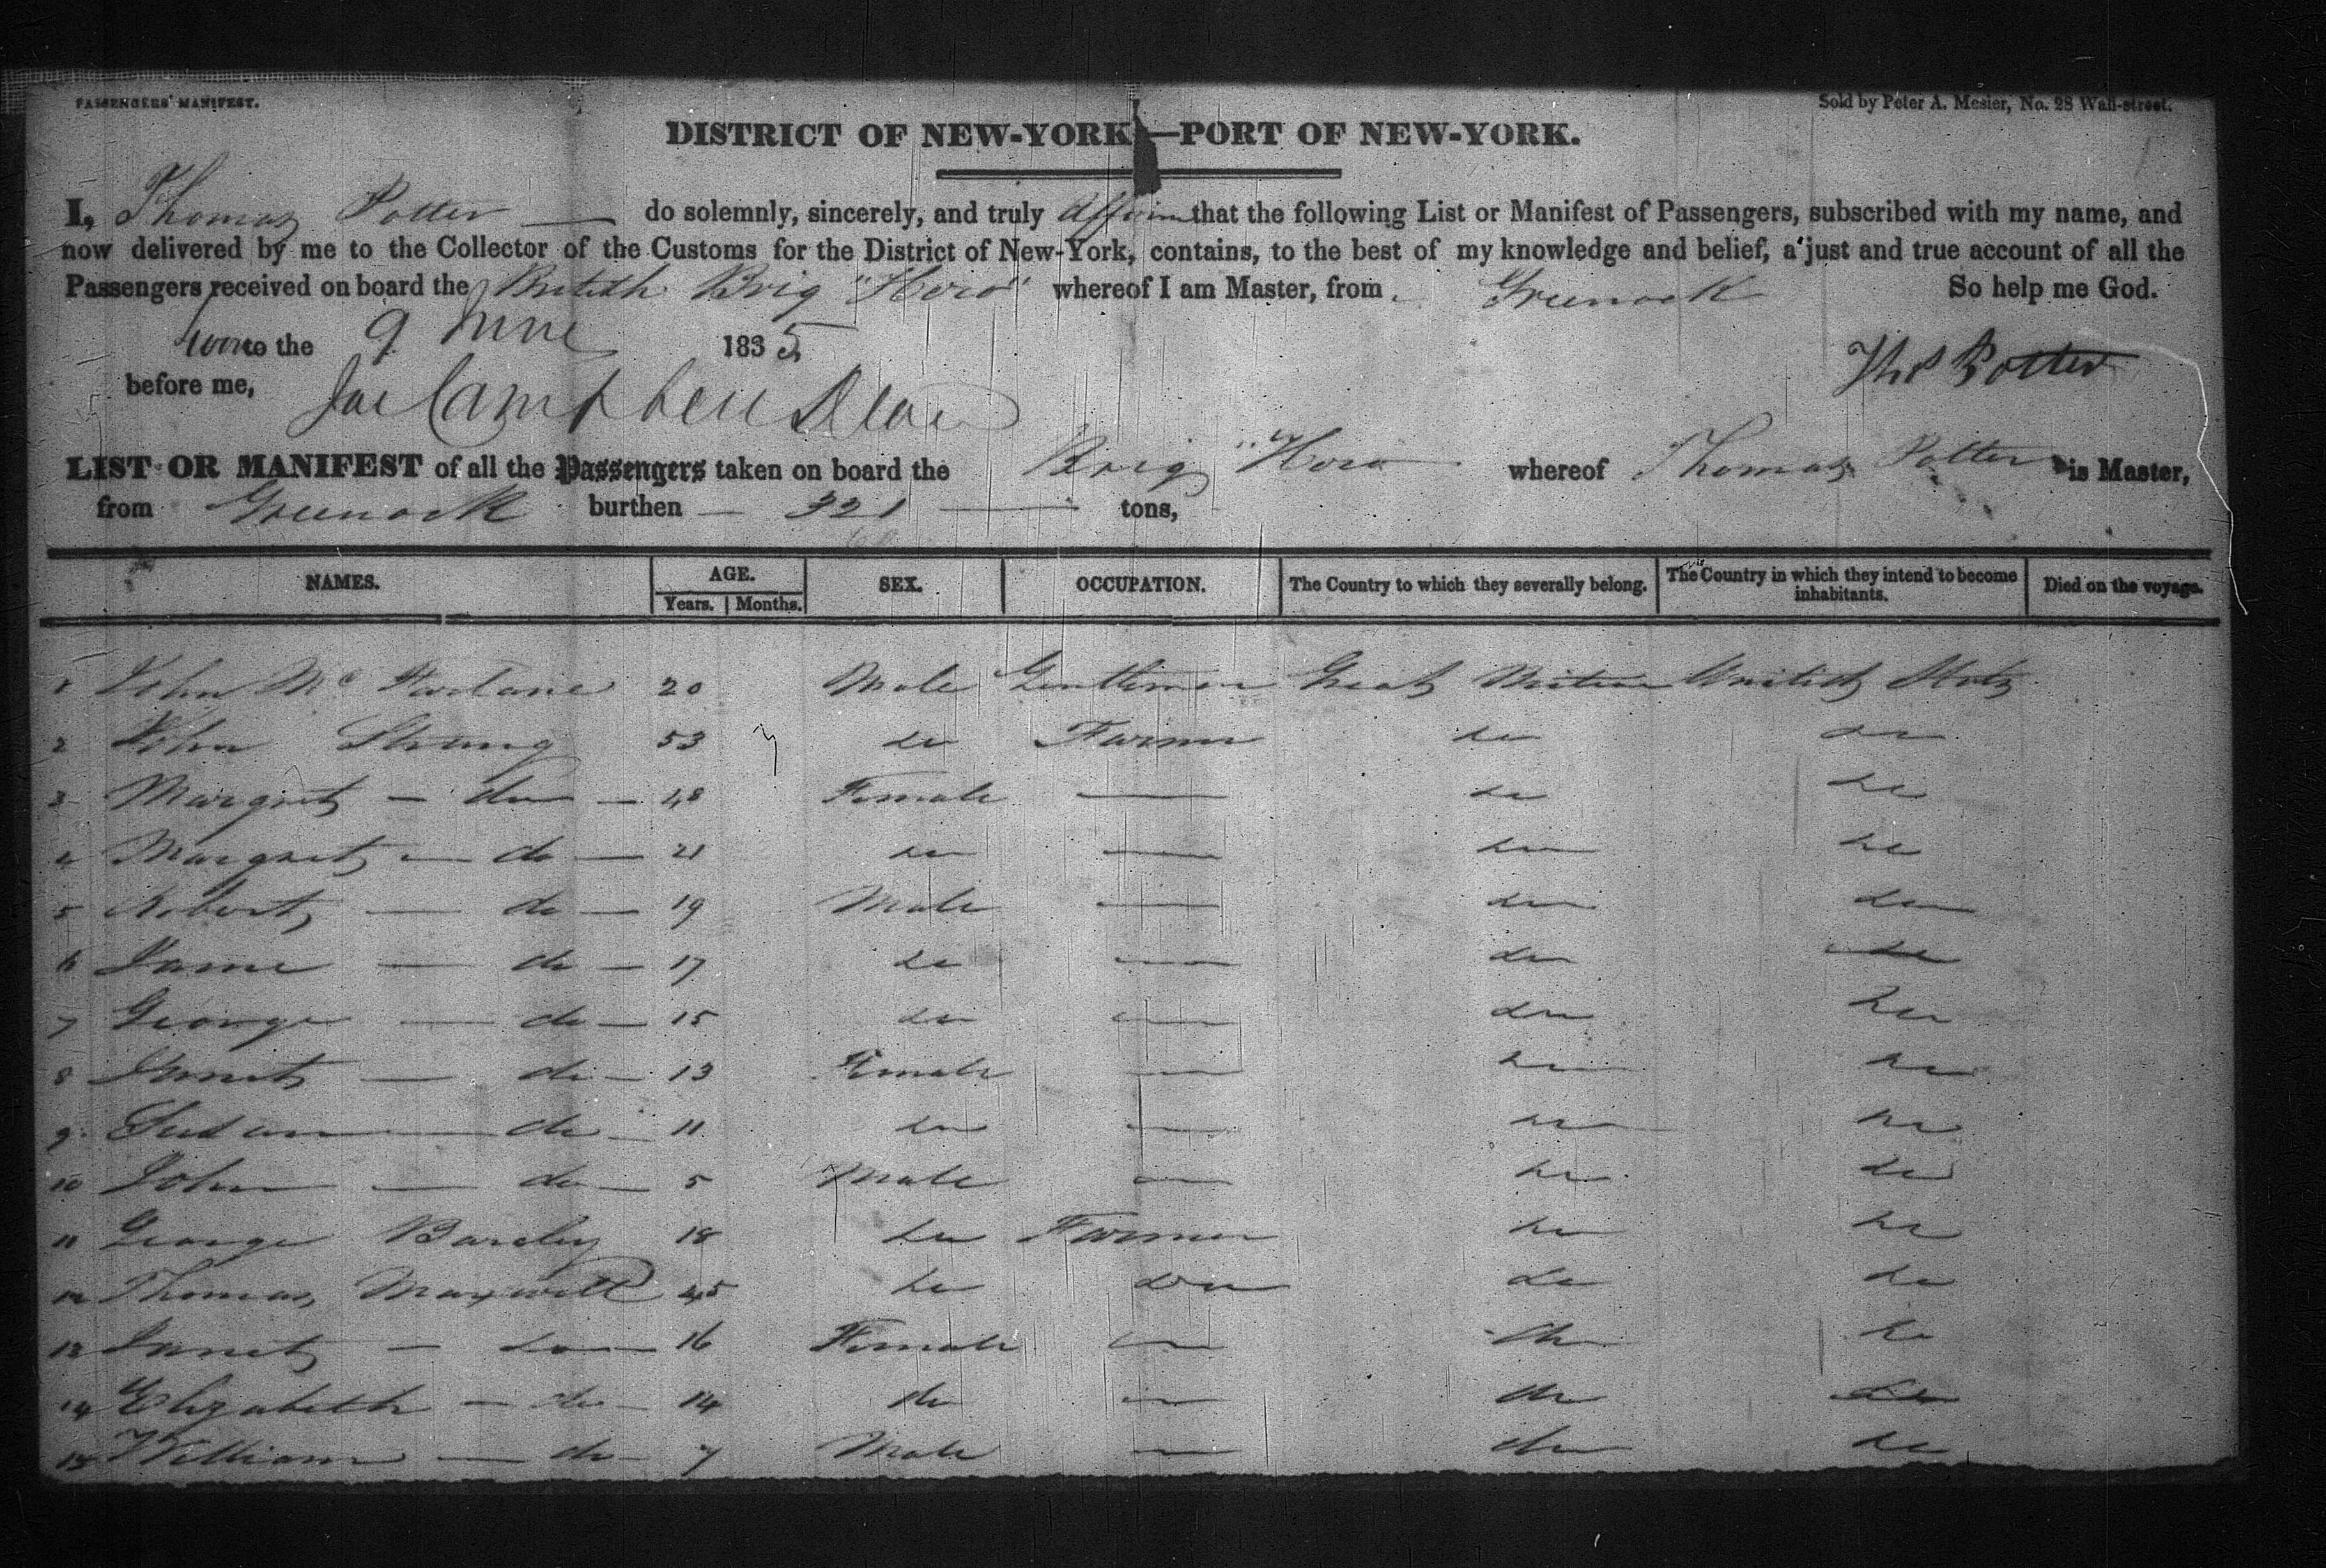 PASSENGERS' MANIFEST.
Sold by Peter A. Mesier, No. 28 Wall-street.
DISTRICT OF NEW-YORK—PORT OF NEW-YORK.
I, Thomas Potter — do solemnly, sincerely, and truly affirm that the following List or Manifest of Passengers, subscribed with my name, and
now delivered by me to the Collector of the Customs for the District of New-York, contains, to the best of my knowledge and belief, a just and true account of all the
Passengers received on board the British Brig "Hero" whereof I am Master, from Greenock So help me God.
to the 9 June 1835
Thos Potter
before me,
Campbell
LIST OR MANIFEST of all the Passengers taken on board the Brig "Hero whereof Thomas Potter is Master,
from Greenock burthen — 321 — tons,
NAMES. AGE. SEX. OCCUPATION. The Country to which they severally belong. The Country in which they intend to become inhabitants. Died on the voyage.
Years. Months.
1 John Mc Farlane 20 Male Gentleman Great Britain United States
2 John Strang 53 do Farmer do do
3 Margret — do — 48 Female — do do
4 Margret — do — 21 do — do do
5 Robert — do — 19 Male — do do
6 Jame — do — 17 do — do do
7 George — do — 15 do — do do
8 Janet — do — 13 Female — do do
9 Susan — do — 11 do — do do
10 John — do — 5 Male — do do
11 George Barcley 18 do Farmer do do
12 Thomas Maxwell 45 do do do do
13 Janet — do — 16 Female — do do
14 Elizabeth — do — 14 do — do do
15 William — do — 7 Male — do do